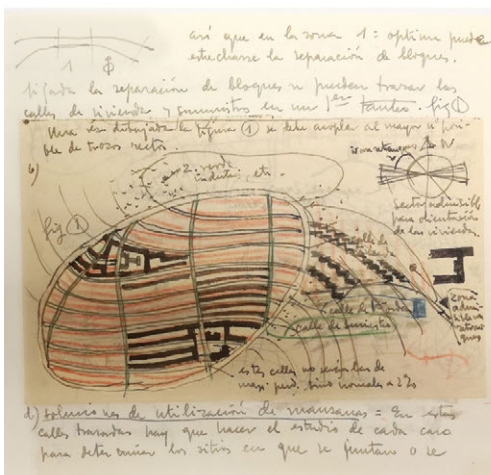 así que en la zona 1: optima puede
estrecharse la separación de bloques.
1
fijada la separación de bloques se pueden trazar las
calles de vivienda y suministros en un 1er tanteo fig 1
Una vez dibujada la figura 1 se debe acoplar al mayor nº posi-
ble de trozos rectos.
b)
z. verde
industria, etc.
N
fig 1
sector admisible
para orientación
de las viviendas.
calle de
calle de suministro
zona
admi-
sible
estas calles no serían las de
max. pend. sino normales a 2%
d) soluciones de utilización de manzanas = En estas
calles trazadas hay que hacer el estudio de cada caso
para determinar los sitios en que se juntan o se